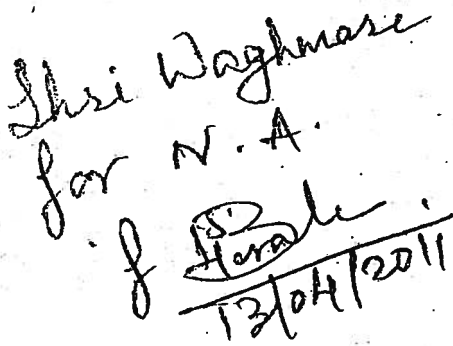 Shri Waghmare
for N. A.
13/04/2011